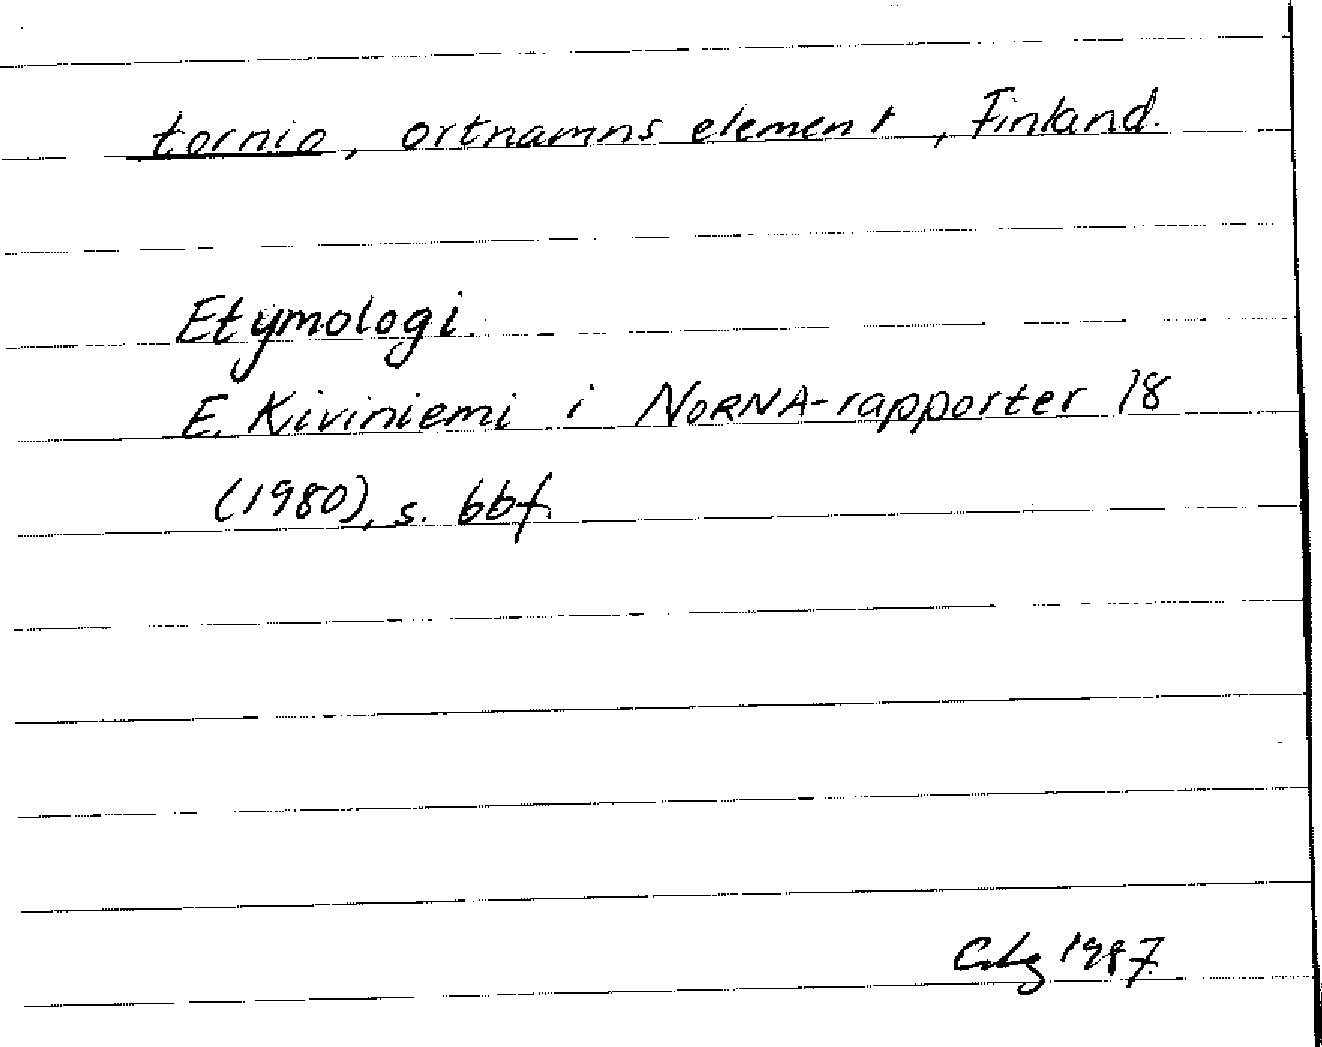 tornio, ortnamnselement, Finland.
Etymologi
E. Kiviniemi i NORNA-rapporter 18
(1980), s. 66f.
1987.